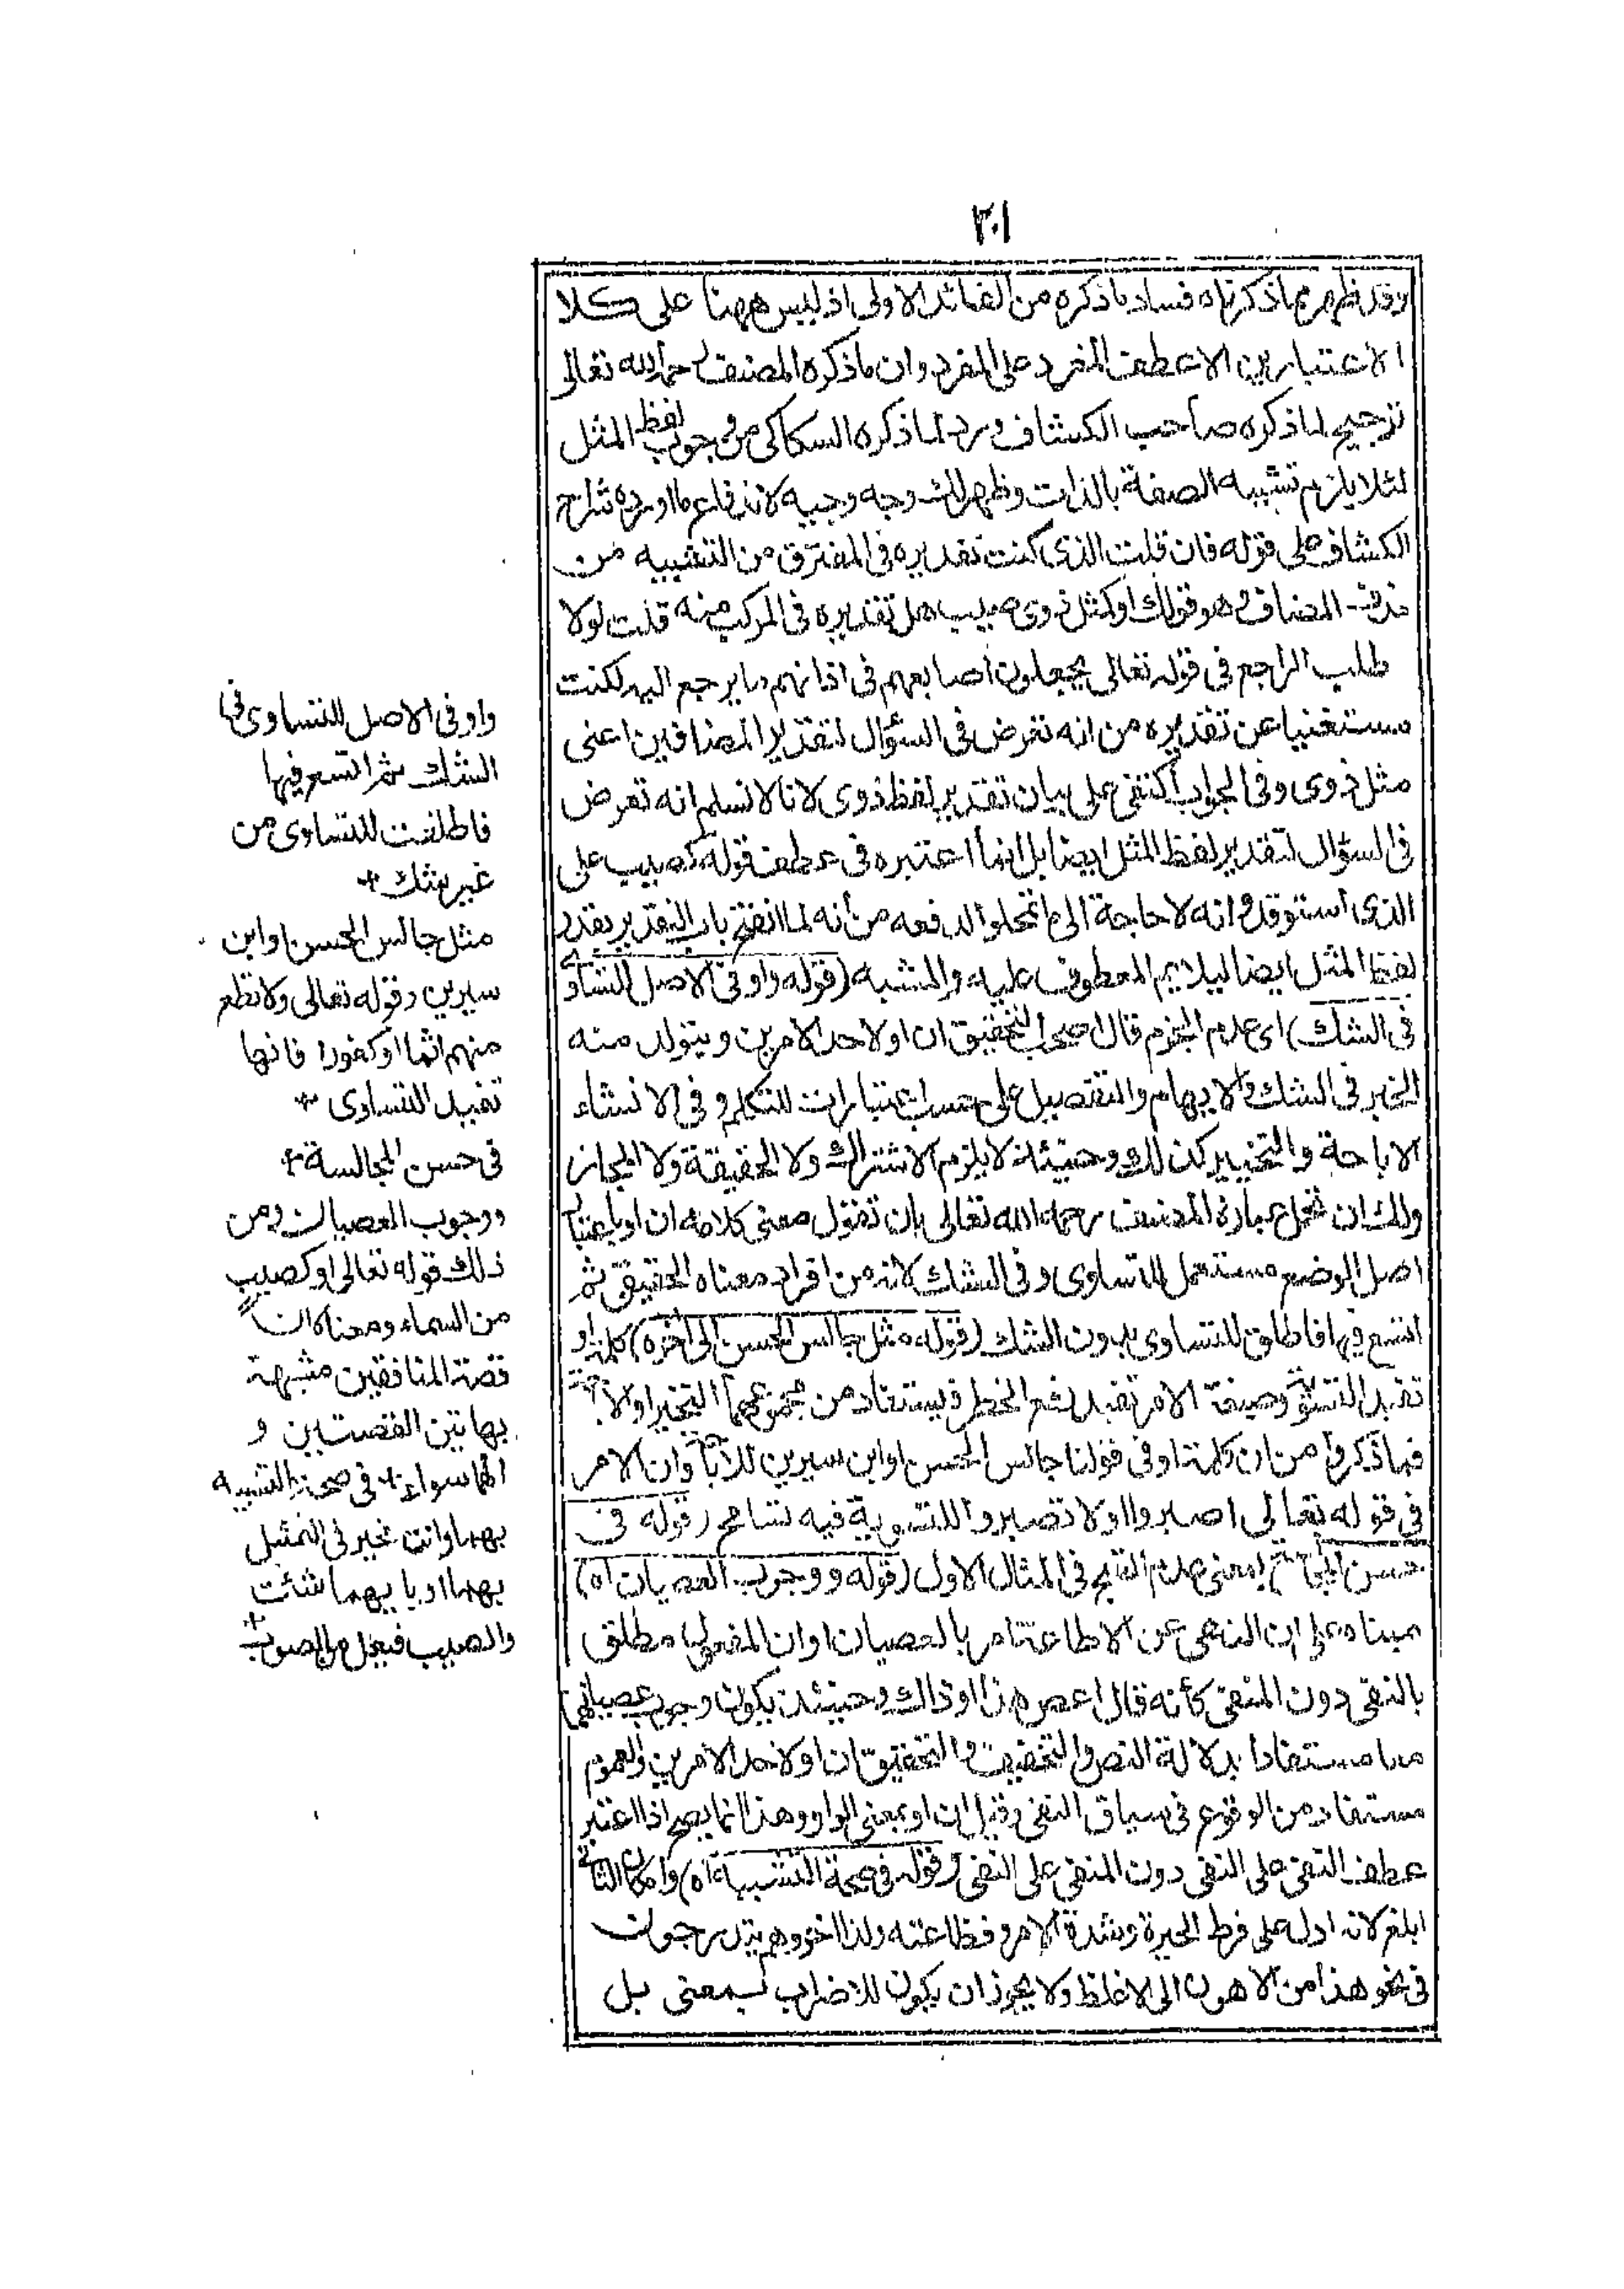 ٣٠١
وقد ظهر مما ذكرناه فساد ما ذكره من الفائد الاولى اذ ليس ههنا على كلا
الاعتبارين الا عطف المفرد على المفرد وان ما ذكره المصنف رحمه الله تعالى
ترجيح لما ذكره صاحب الكشاف ورد لما ذكره السكاكي من وجوب لفظ المثل
لئلا يلزم تشبيه الصفة بالذات وظهر لك وجه وجيه لاندفاع ما اورده شارح
الكشاف على قوله فان قلت الذي كنت تقديره في المفترق من التشبيه من
حذف المضاف وهو قولك او كمثل ذوي صيب هل تقديره في المركب منه قلت لولا
طلب الراجع في قوله تعالى يجعلون اصابعهم في اذانهم ما يرجع اليه لكنت
مستغنيا عن تقديره من انه تعرض في السؤال لتقدير المضافين اعنى
مثل ذوي وفي الجواب اكتفى على بيان تقدير لفظ ذوى لانا لا نسلم انه تعرض
في السؤال لتقدير لفظ المثل ايضا بل انما اعتبره في عطف قوله كصيب على
الذي استوقد وانه لا حاجة الى ما تمحلوا لدفعه من أنه لما انفتح باب التقدير يقدر
لفظ المثل ايضا ليلايم المعطوف عليه والمشبه (قوله واو في الاصل للتساوى
في الشك) اى عدم الجزم قال اصحاب التحقيق ان او لاحد الامرين ويتولد منه
الخبر في الشك والابهام والتفصيل على حسب اعتبارات المتكلم وفي الانشاء
الاباحة والتخيير كذلك وحينئذ لا يلزم الاشتراك ولا الحقيقة ولا المجاز
ولك ان تحمل عبارة المصنف رحمه الله تعالى بان تقول معنى كلامه ان او باعتبار
اصل الوضع مستعمل للتساوى وفي الشك لانه من افراد معناه الحقيقي ثم
اتسع فيها فاطلق للتساوى بدون الشك (قوله مثل جالس الحسن الى اخره) كلمة او
تفيد التسوية وصيغة الامر تفيد رفع الخطر فيستفاد من مجموعهما التخيير او الاباحة
فما ذكروا من ان كلمة او في قولنا جالس الحسن او ابن سيرين للاباحة وان الامر
في قوله تعالى اصبروا او لا تصبروا للتسوية فيه تسامح (قوله في
حسن المجالسة) بمعنى عدم القبح في المثال الاول (قوله ووجوب العصيان اه)
مبناه على ان النهى عن الاطاعة امر بالعصيان او ان المفعول مطلق
بالنفى دون المنفى كأنه قال اعص هذا او ذاك وحينئذ يكون وجوب عصيانهما
معا مستفادا بدلالة النص والتحقيق ان او لاحد الامرين والعموم
مستفاد من الوقوع في سياق النفى وقيل ان او بمعنى الواو وهذا انما يصح اذا اعتبر
عطف النفى على النفى دون المنفى على النفى (قوله في صحة التشبيه اه) وان كان الثاني
ابلغ لانه ادل على فرط الحيرة وشدة الامر وفظاعته ولذا اخر وهم يتدرجون
في نحو هذا من الاهون الى الاغلظ ولا يجوز ان يكون للاضراب بمعنى بل
واو في الاصل للتساوى في
الشك ثم اتسع فيها
فاطلقت للتساوى من
غير شك +
مثل جالس الحسن او ابن
سيرين وقوله تعالى ولا تطع
منهم اثما او كفورا فانها
تفيد التساوى +
في حسن المجالسة +
ووجوب العصيان ومن
ذلك قوله تعالى او كصيب
من السماء ومعناه ان
قصة المنافقين مشبهة
بهاتين القصتين و
انهما سواء + في صحة التشبيه
بهما وانت مخير في التمثيل
بهما او بايهما شئت
والصيب فيعل من الصوب +